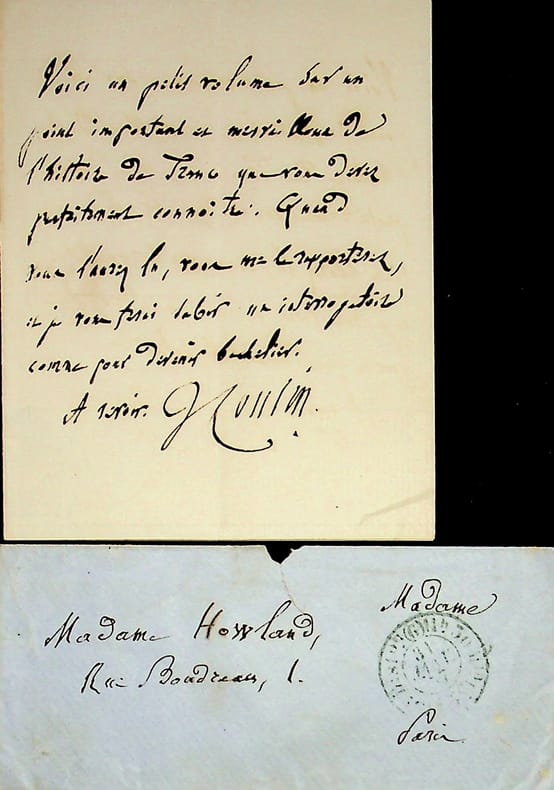 Voici un petit volume sur un
point important et merveilleux de
l'histoire de France que vous devez
parfaitement connoître. Quand
vous l'aurez lu, vous me le rapporterez,
et je vous ferai subir un interrogatoire
comme pour devenir bachelier.
A revoir. V Cousin.
Madame
Madame Howland,
Rue Boudreau, 1.
Paris